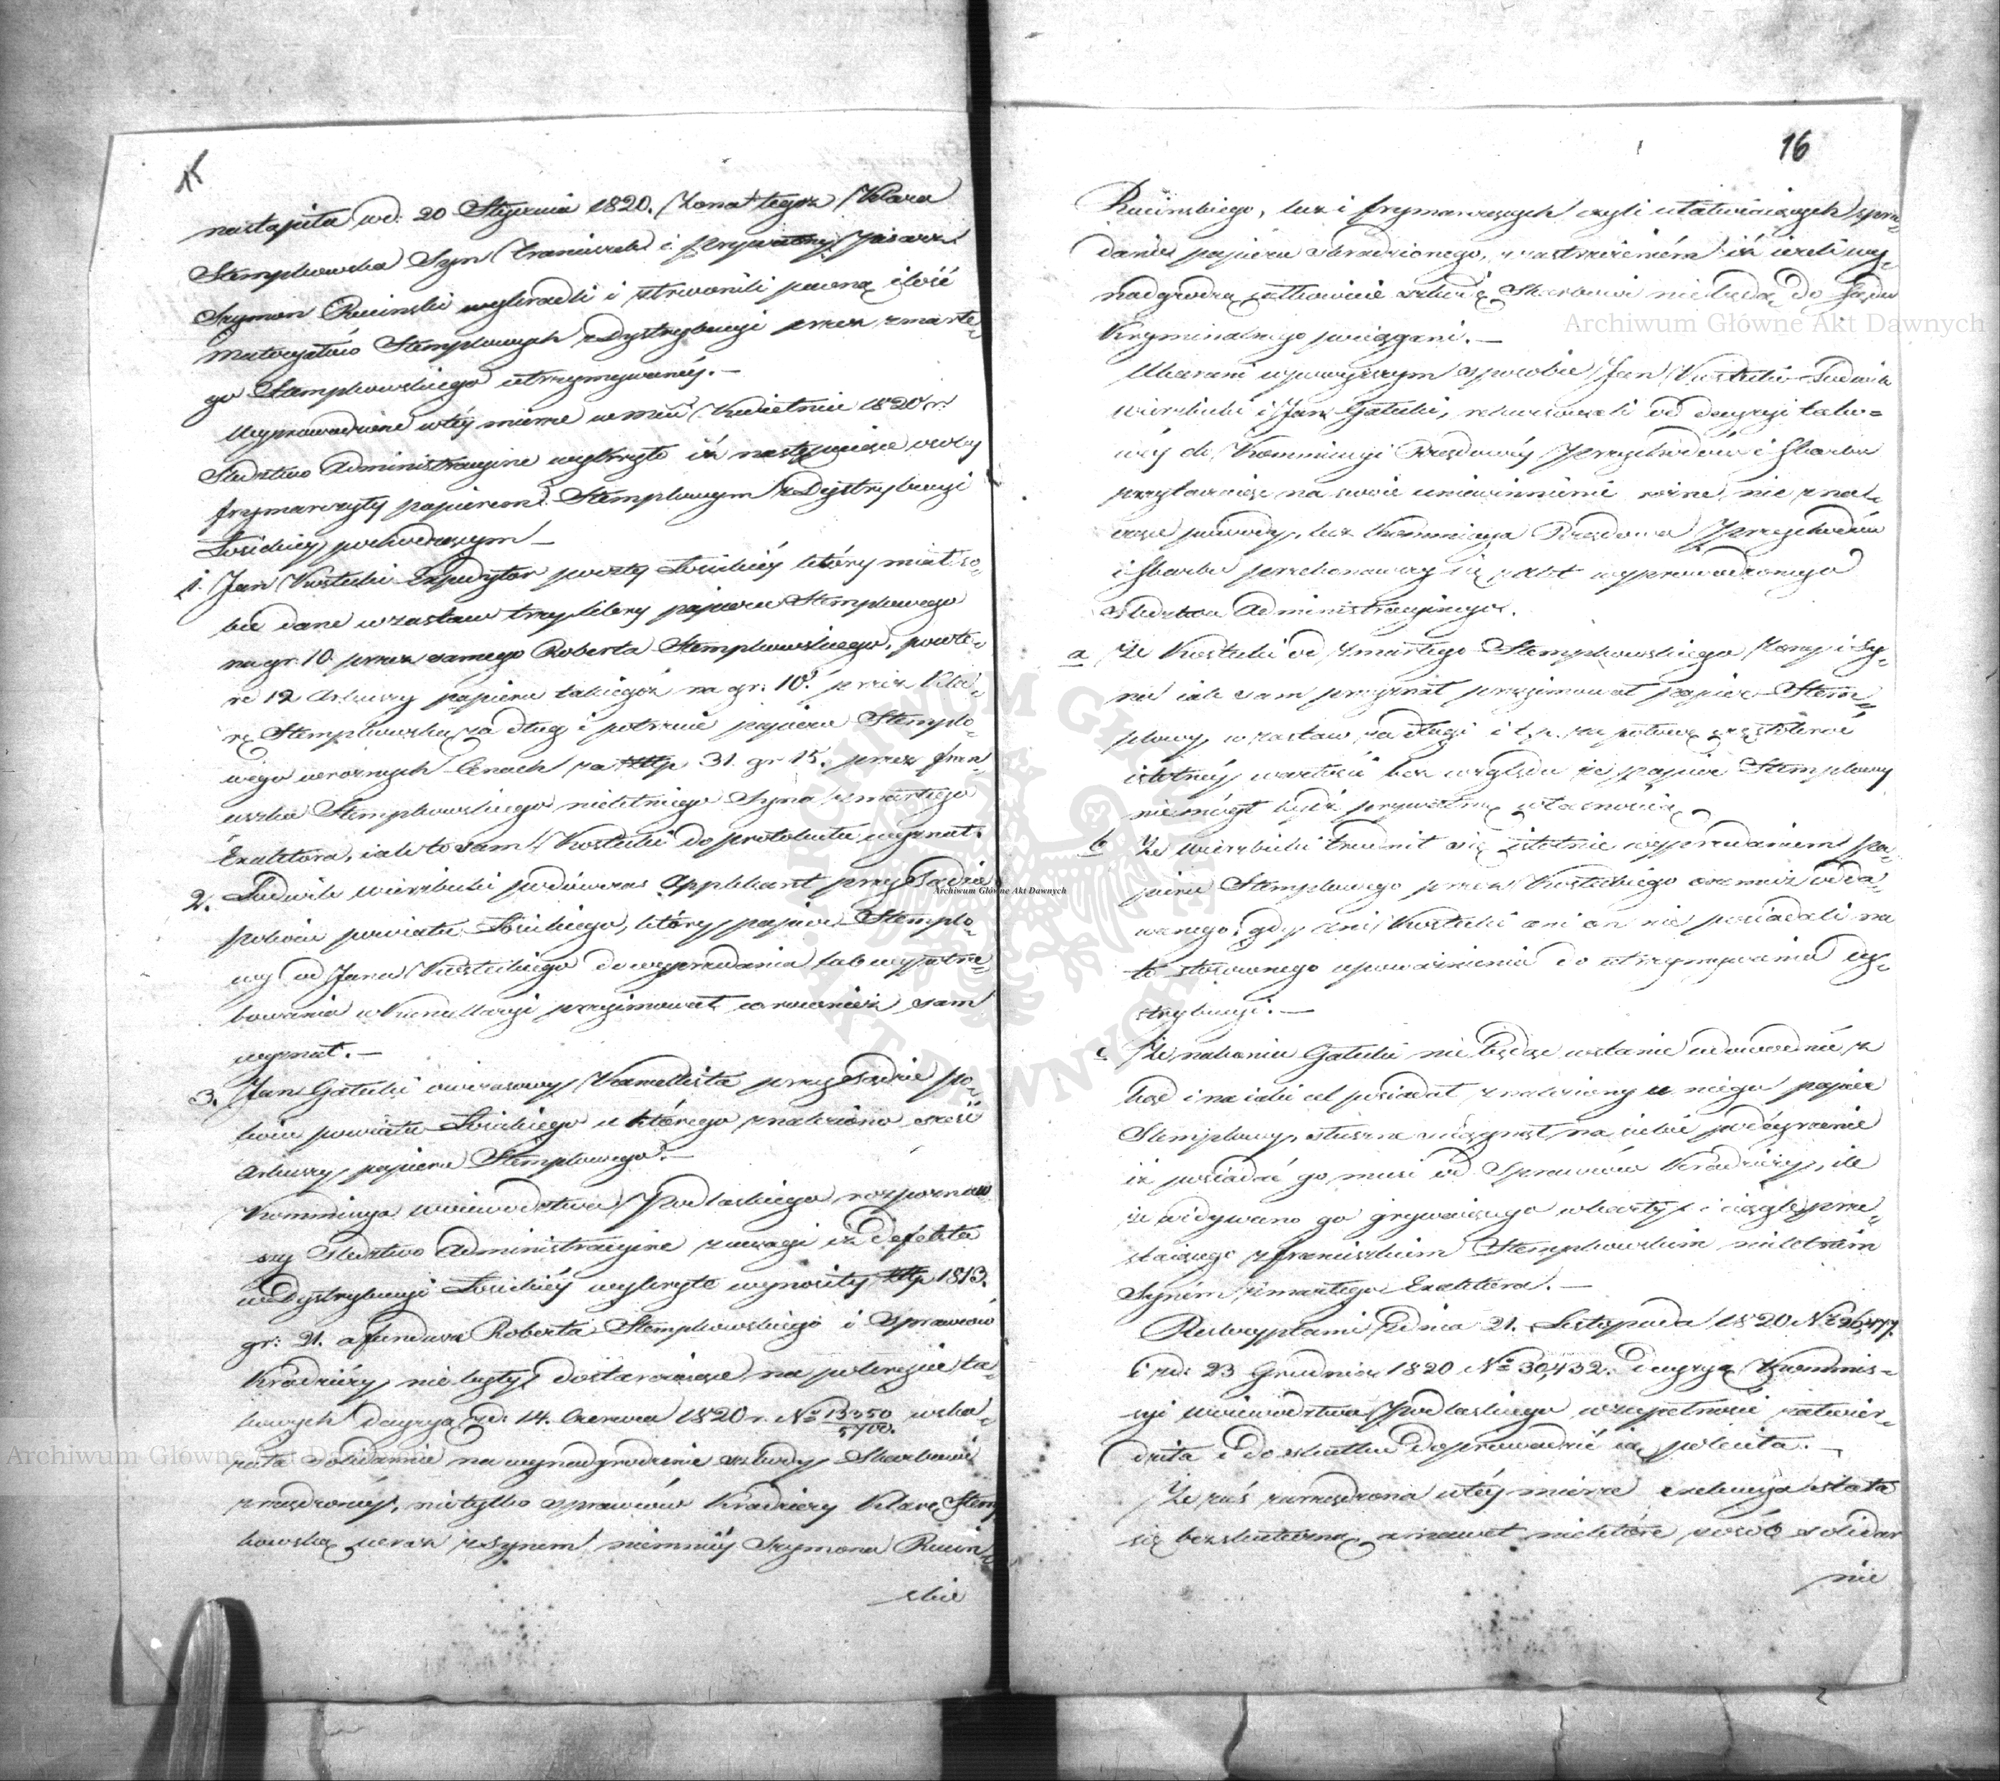 15
nastąpiła wd: 20 Stycznia 1820. Żona tegoż Klara
Stempkowska Syn Franciszek i prywatny Pisarz
Szymon Rucinski wykradli i strwonili pewną ilość
Materyałów Stemplowych z Dystrybucyi przez zmarłe-
go Stempkowskiego utrzymywanéy. —
Wyprowadzone wtéy mierze w mcu Kwietniu 1820 r.
Sledztwo Administracyine wykryło iż następuiące osoby
frymarczyły papierem Stemplowym z Dystrybucyi
Łosickiey pochodzącym —
1. Jan Kostecki Expedytor poczty Łosickiéy który miał so-
bie dane w zastaw trzy libry papieru Stemplowego
na gr. 10 przez samego Roberta Stempkowskiego, powtó-
re 12 Arkuszy papieru takiegoż na gr: 10. przez Kla-
rę Stempkowską za dług i potrzecie papieru Stemplo-
wego w roznych Cenach za złtp 31. gr 15. przez Fran-
ciszka Stempkowskiego nieletniego Syna zmarłego
Exaktora, iak to sam Kostecki do protokułu wyznał.
2. Ludwik Wierzbicki podówczas Applikant przy Sądzie
pokoiu powiatu Łosickiego, który papier Stemplo-
wy od Jana Kosteckiego do wyprzedania lub wypotrze-
bowania w Kancellaryi przyimował co rownież sam
wyznał. —
3. Jan Gałecki owczasowy Kancellista przy Sądzie po-
koiu powiatu Łosickiego u którego znaleziono sześć
Arkuszy papieru Stemplowego. —
Kommissya Woiewodztwa Podlaskiego rozpoznaw
szy Sledztwo Administracyine z uwagi iż defekta
w Dystrybucyi Łosickiéy wykryte wynosiły złtp 1813.
gr: 21. a fundusz Roberta Stempkowskiego i Sprawców
Kradzieży nie były dostarczaiące na pokrycie ta-
kowych decyzyą zd: 14. Czerwca 1820 r. No 13350/5700. wska-
zała solidarnie na wynadgrodzenie szkody Skarbowi
zrządzonéy, nietylko sprawców Kradzieży Klarę Stemp
kowską wraz z Synem niemniéy Szymona Rucin-
skie
16
Rucinskiego, lecz i frymarczących czyli ułatwiaiących sprze
danie papieru skradzionego, z zastrzeżeniém iż ieżeli wy-
nadgrodzą całkowicie szkodę Skarbowi nie będą do Sądu
Kryminalnego pociągani. —
Ukarani w powyższym sposobie Jan Kostecki Ludwik
Wierzbicki i Jan Gałecki, rekurowali od decyzyi tako-
wéy do Kommissyi Rządowéy Przychodów i Skarbu
przytaczaiąc na swoie uniewinnienie rożne nic nie zna-
czące powody, lecz Kommissya Rządowa Przychodów
i Skarbu przekonawszy się z akt wyprowadzonego
Sledztwa Administracyinego.
a Że Kostecki od zmarłego Stempkowskiego Żony i Sy-
na iak sam przyznał przyimował papier Stem-
plowy w zastaw za długi i t. p. za połowę częstokroć
istotnéy wartości bez względu że papier Stemplowy
nie mógł być prywatną własnością
b Że Wierzbicki trudnił się istotnie wyprzedaniem pa-
pieru Stemplowego przez Kosteckiego onemuż odda-
wanego; gdy ani Kostecki ani on nie posiadali na
to stosownego upoważnienia do utrzymywania Dy-
strybucyi. —
c Że nakoniec Gałecki nie będąc wstanie udowodnić z
kąd i na iaki cel posiadał znaleziony u niego papier
Stemplowy, słusznie sciągnął na siebie podéyrzenie
iż posiadać go musi od Sprawców Kradzieży, ile
że widywano go grywaiącego w karty i ciągle prze-
staiącego z Franciszkiem Stempkowskim nieletnim
Synem zmarłego Exaktora. —
Reskryptami z dnia 21. Listopada 1820 No 26,477.
i zd: 23 Grudnia 1820 No 30,432. decyzyą Kommis-
syi Woiewodztwa Podlaskiego w zupełności zatwier-
dziła i do skutku doprowadzić ią poleciła. —
Że zaś zarządzona wtéy mierze exekucya stała
się bezskuteczną, a nawet niektóre z osób solidar
nie
Archiwum Główne Akt Dawnych
Archiwum Główne Akt Dawnych
Archiwum Główne Akt Dawnych
ARCHIWUM GŁÓWNE AKT DAWNYCH